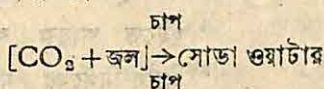 চাপ
[CO₂+জল]→সোডা ওয়াটার
চাপ